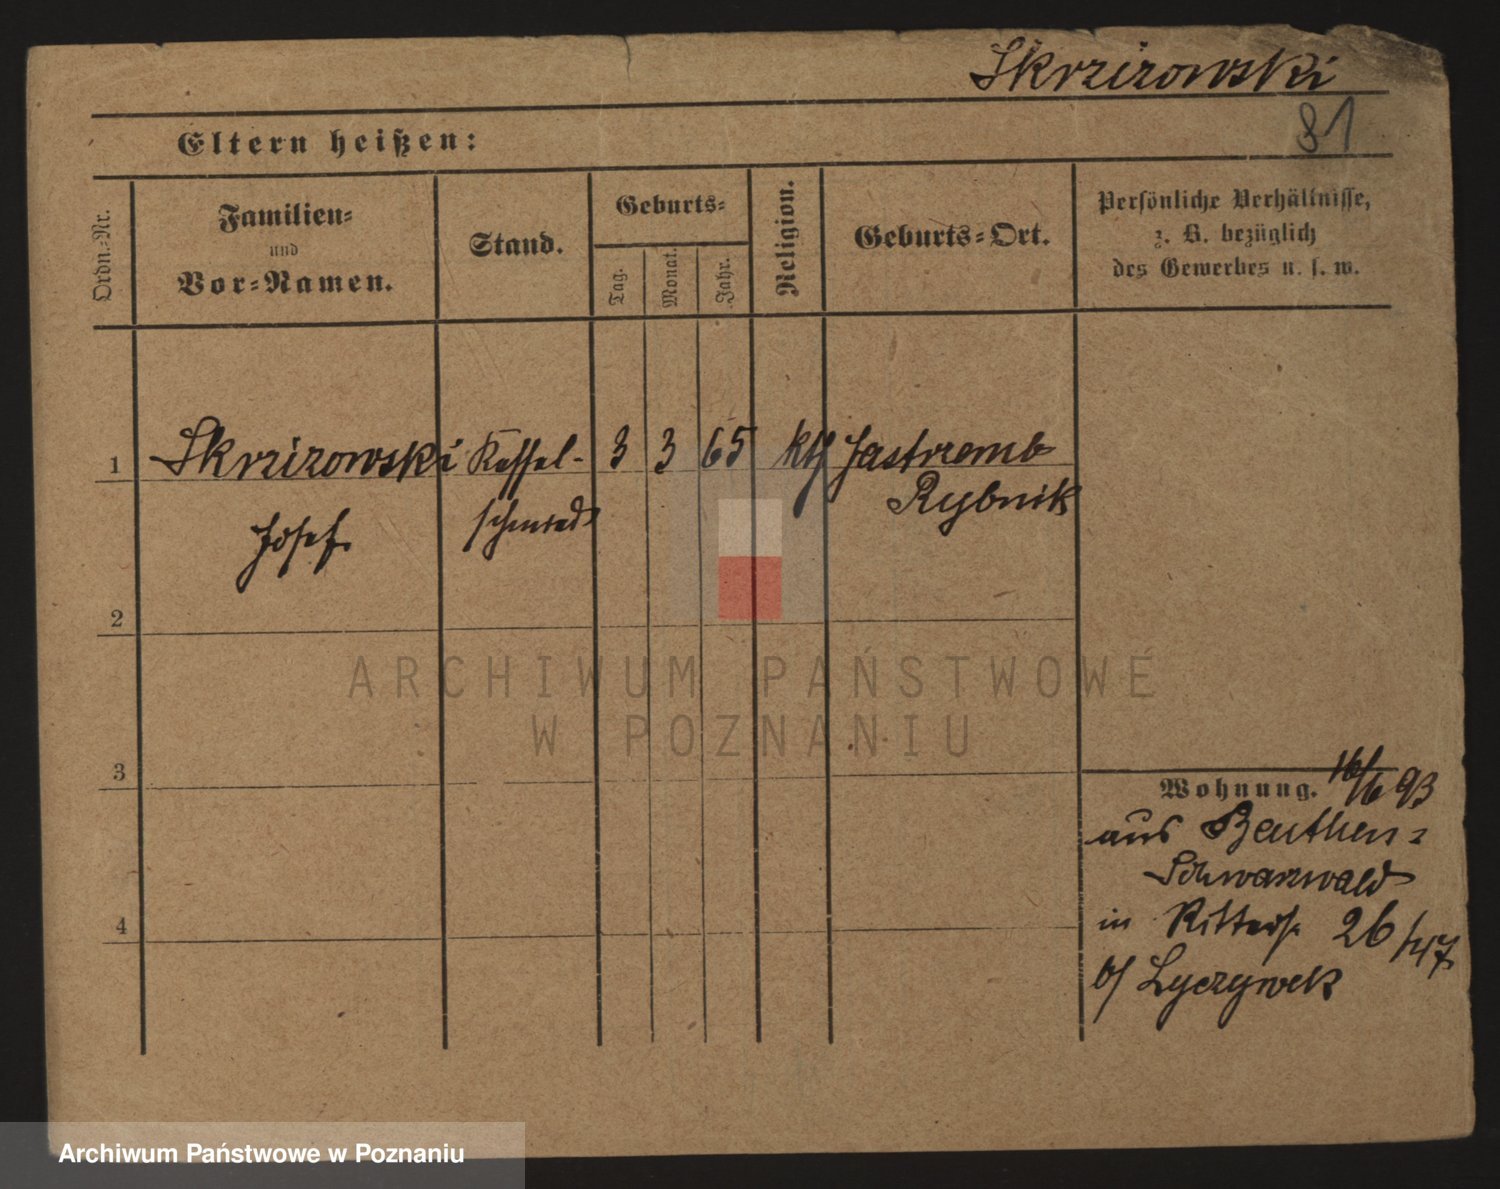 Skrzizowski
81
Eltern heißen:
Ordn.-Nr.
Familien-
und
Vor-Namen.
Stand.
Geburts-
Tag.
Monat.
Jahr.
Religion.
Geburts-Ort.
Persönliche Verhältnisse,
z. B. bezüglich
des Gewerbes u. s. w.
1 Skrzizowski Kessel- 3 3 65 kth Jastrzemb
Rybnik
Josef schmied
2
ARCHIWUM PAŃSTWOWE
W POZNANIU
3
Wohnung. 16/6 93
aus Beuthen-
Schwarzwald
in Ritterst. 26/47
4
b/ Lyczywek
Archiwum Państwowe w Poznaniu